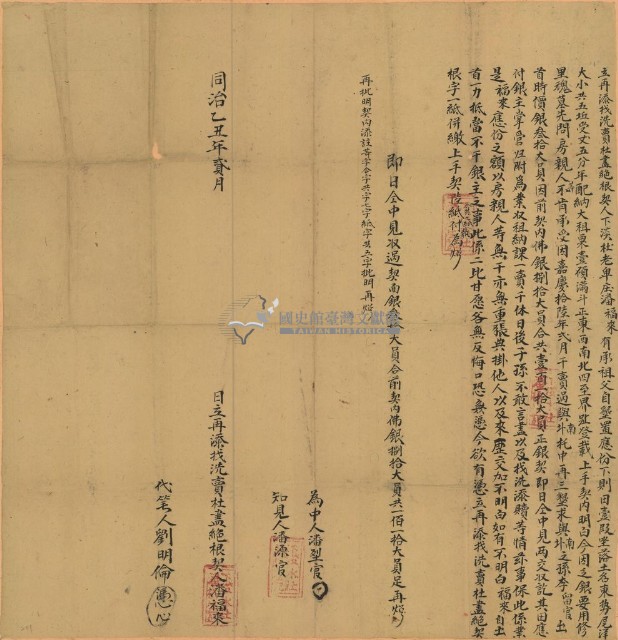 立再添找洗賣杜盡絕根契人下淡社老卑庄潘福來有承祖父自墾置應份下則田壹段坐落土名東勢尾洋
大小共五坵受丈五分年配納大租粟壹碩滿斗正東西南北四至界址登載上手契內明白今因乏銀要用修
里魂墓先問房親人不肯承受因嘉慶拾陸年弍月干賣過與外托中再三懇求與外之孫李留官出
首時價銀叁拾大員因前契內佛銀捌拾大員合共壹百一拾大員正銀契即日仝中見兩交收訖其田應
付銀主掌管召附為業收租納課一賣千休日後子孫不敢言盡以及找洗添贖等情弊事保此係業
是福來應份之額以房親人等無干亦無重張典掛他人以及來歷交加不明白如有不明白福來自出
首一力抵當不干銀主之事此係二比甘愿各無反悔口恐無憑今欲有憑立再添找洗賣杜盡絕契
根字一紙併繳上手契陸紙付為炤
即日仝中見收過契面銀叁拾大員合前契內佛銀捌拾大員共一佰一拾大員足再炤
再批明契內添註等字仝字共字七字紙字共五字批明再炤
為中人潘烈官
知見人潘源官
同治乙丑年貳月 日立再添找洗賣杜盡絕根契人潘福來
代筆人劉明倫憑心
國史館臺灣文獻館
TAIWAN HISTORICA